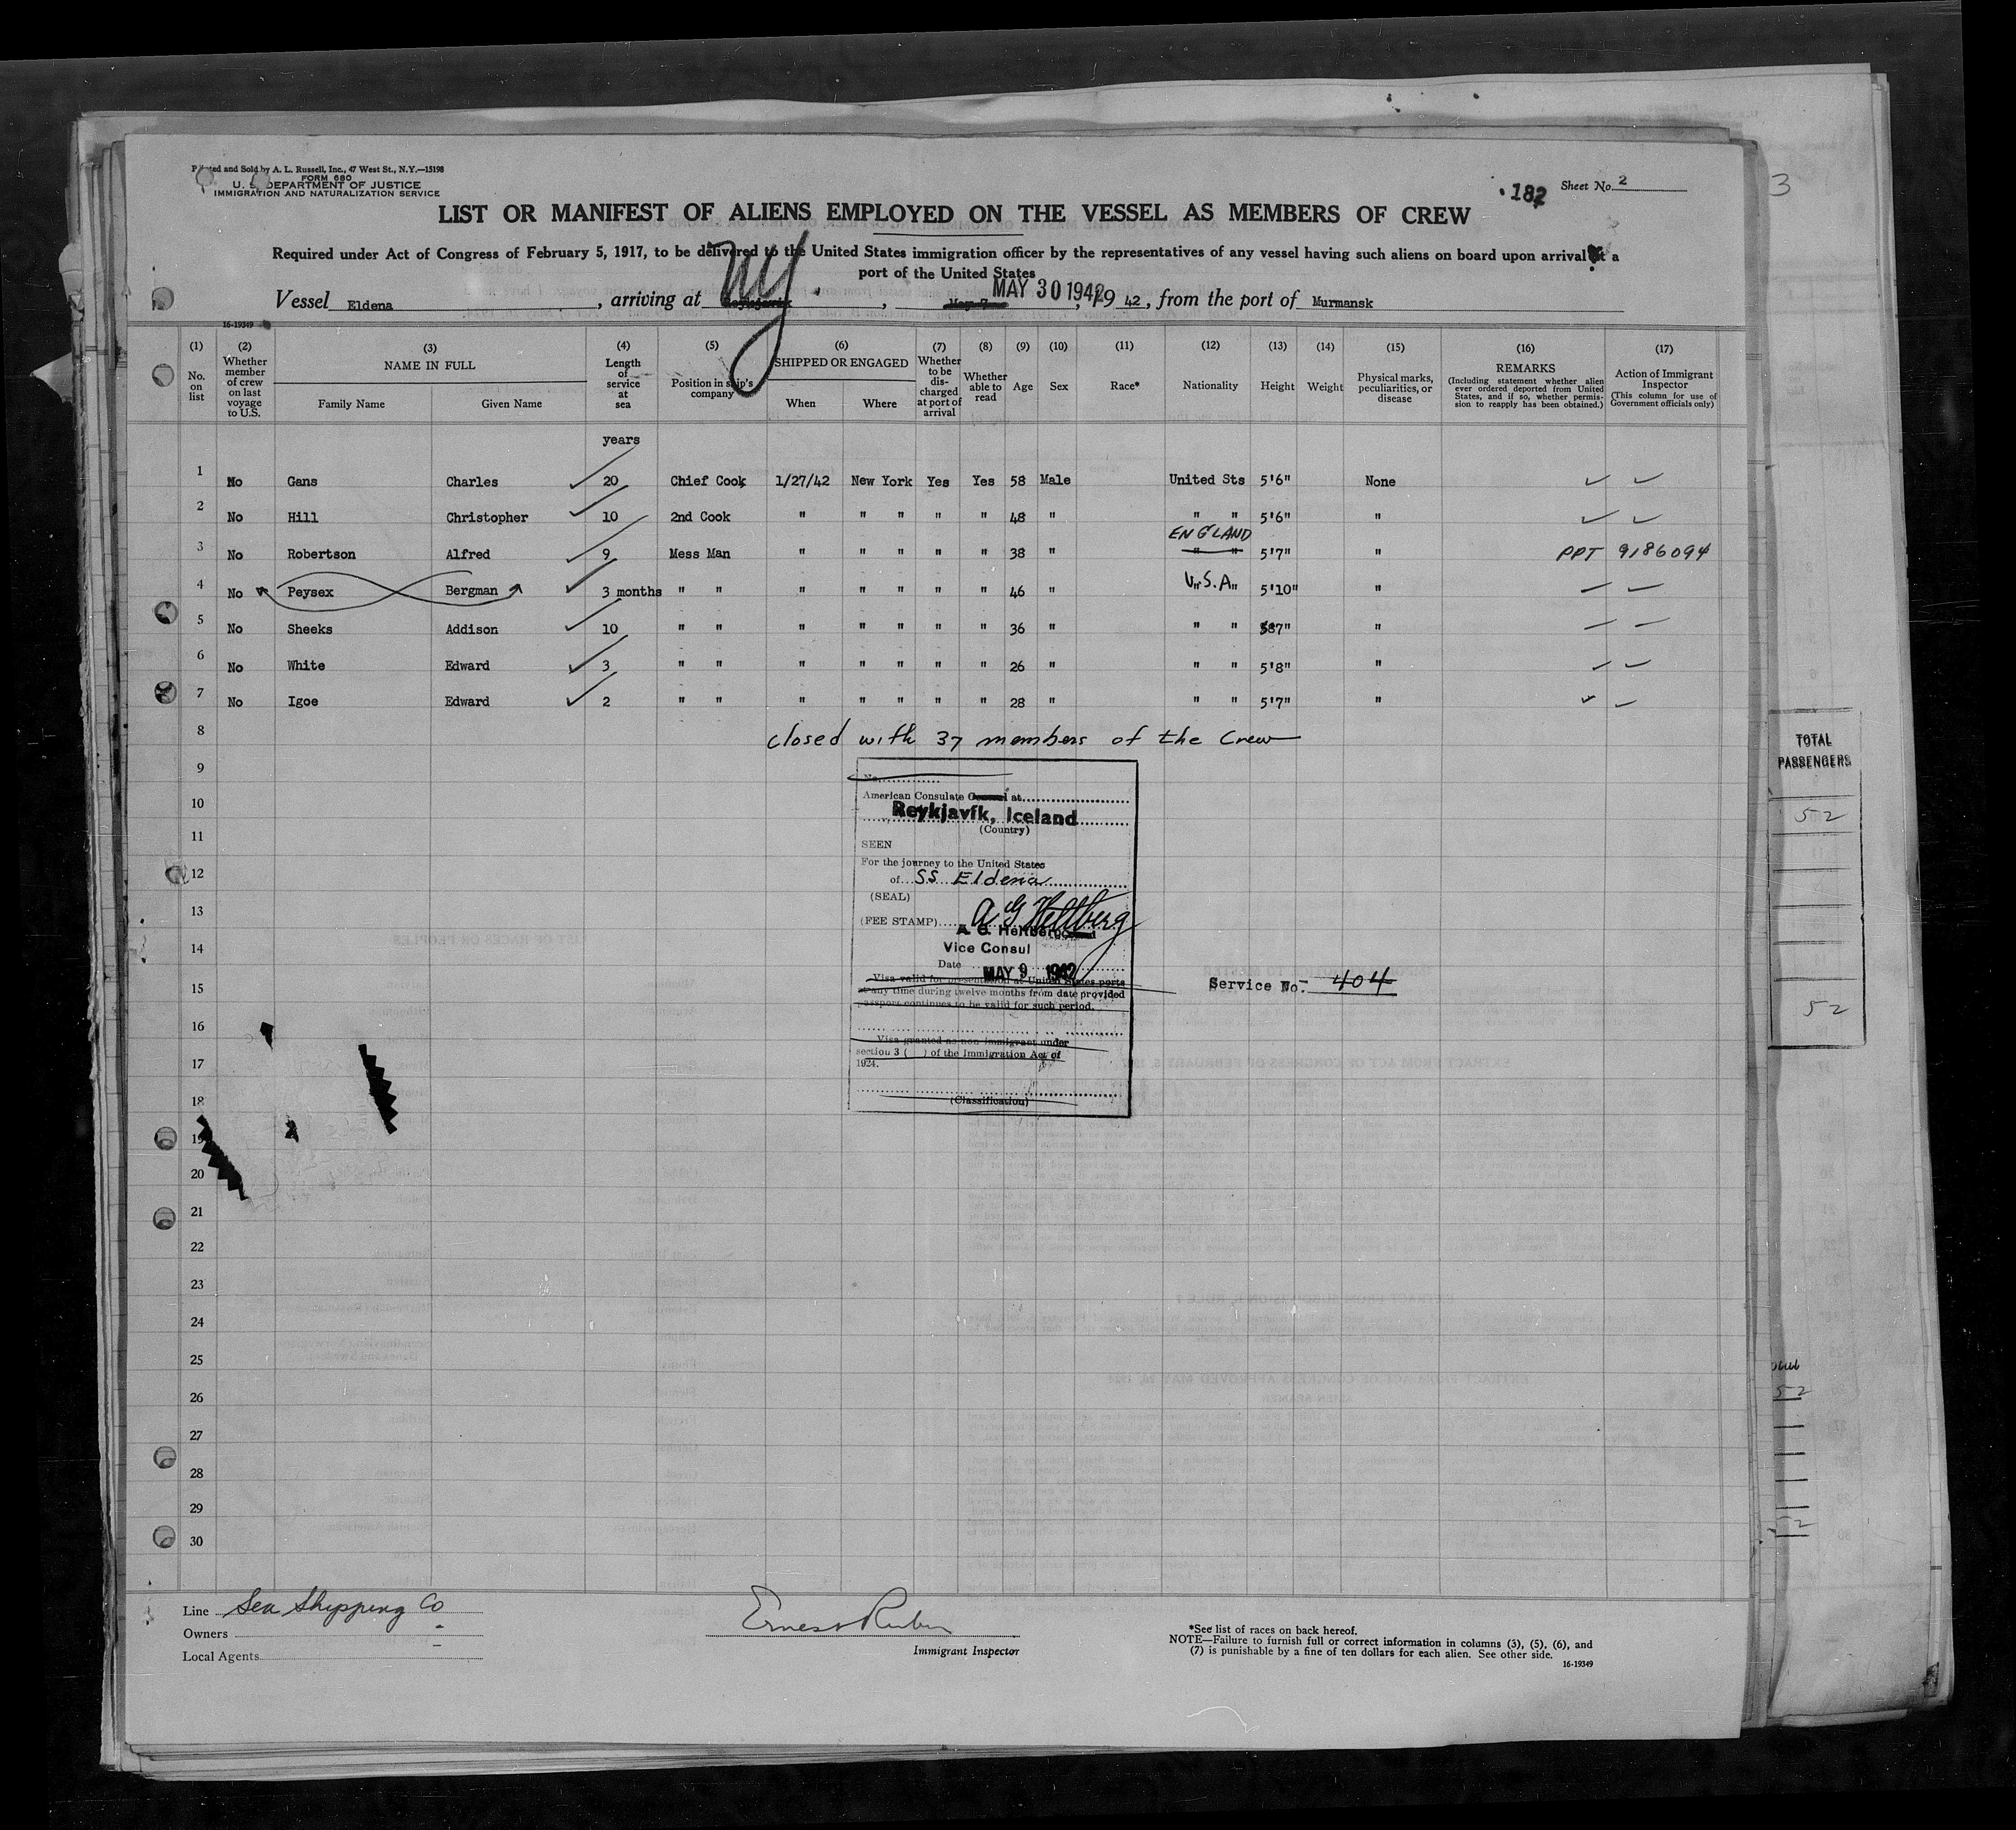 Printed and Sold by A. L. Russell, Inc., 47 West St., N.Y.—15198
FORM 680
U. S. DEPARTMENT OF JUSTICE
IMMIGRATION AND NATURALIZATION SERVICE
182 Sheet No. 2
3
LIST OR MANIFEST OF ALIENS EMPLOYED ON THE VESSEL AS MEMBERS OF CREW
Required under Act of Congress of February 5, 1917, to be delivered to the United States immigration officer by the representatives of any vessel having such aliens on board upon arrival at a
port of the United States
Vessel Eldena, arriving at Reykjavik NY., MAY 30 1942, 19 42, from the port of Murmansk
16-19349
(1) (2) (3) (4) (5) (6) (7) (8) (9) (10) (11) (12) (13) (14) (15) (16) (17)
No. on list
Whether member of crew on last voyage to U.S.
NAME IN FULL
Family Name Given Name
Length of service at sea
Position in ship's company
SHIPPED OR ENGAGED
When Where
Whether to be discharged at port of arrival
Whether able to read
Age
Sex
Race*
Nationality
Height
Weight
Physical marks, peculiarities, or disease
REMARKS
(Including statement whether alien ever ordered deported from United States, and if so, whether permission to reapply has been obtained.)
Action of Immigrant Inspector
(This column for use of Government officials only)
years
1 No Gans Charles 20 Chief Cook 1/27/42 New York Yes Yes 58 Male United Sts 5'6" None
2 No Hill Christopher 10 2nd Cook " " " " " 48 " " " 5'6" "
ENGLAND
3 No Robertson Alfred 9 Mess Man " " " " " 38 " " " 5'7" " PPT 9186094
4 No Peysex Bergman 3 months " " " " " " " 46 " U.S.A. 5'10" "
5 No Sheeks Addison 10 " " " " " " " 36 " " " 5'7" "
6 No White Edward 3 " " " " " " " 26 " " " 5'8" "
7 No Igoe Edward 2 " " " " " " " 28 " " " 5'7" "
8 closed with 37 members of the Crew
9
10
11
12
13
14
15
16
17
18
19
20
21
22
23
24
25
26
27
28
29
30
No.
American Consulate General at
Reykjavík, Iceland
(Country)
SEEN
For the journey to the United States
of SS Eldena
(SEAL)
(FEE STAMP) A G Heltberg
A. G. Heltberg
Vice Consul
Date MAY 9 1942
Visa valid for presentation at United States ports
at any time during twelve months from date provided
passport continues to be valid for such period.
Visa granted as non immigrant under
section 3 ( ) of the Immigration Act of
1924.
(Classification)
Service No. 404
TOTAL
PASSENGERS
52
52
52
52
Line Sea Shipping Co
Owners "
Local Agents
Ernest Rubin
Immigrant Inspector
*See list of races on back hereof.
NOTE—Failure to furnish full or correct information in columns (3), (5), (6), and
(7) is punishable by a fine of ten dollars for each alien. See other side.
16-19349